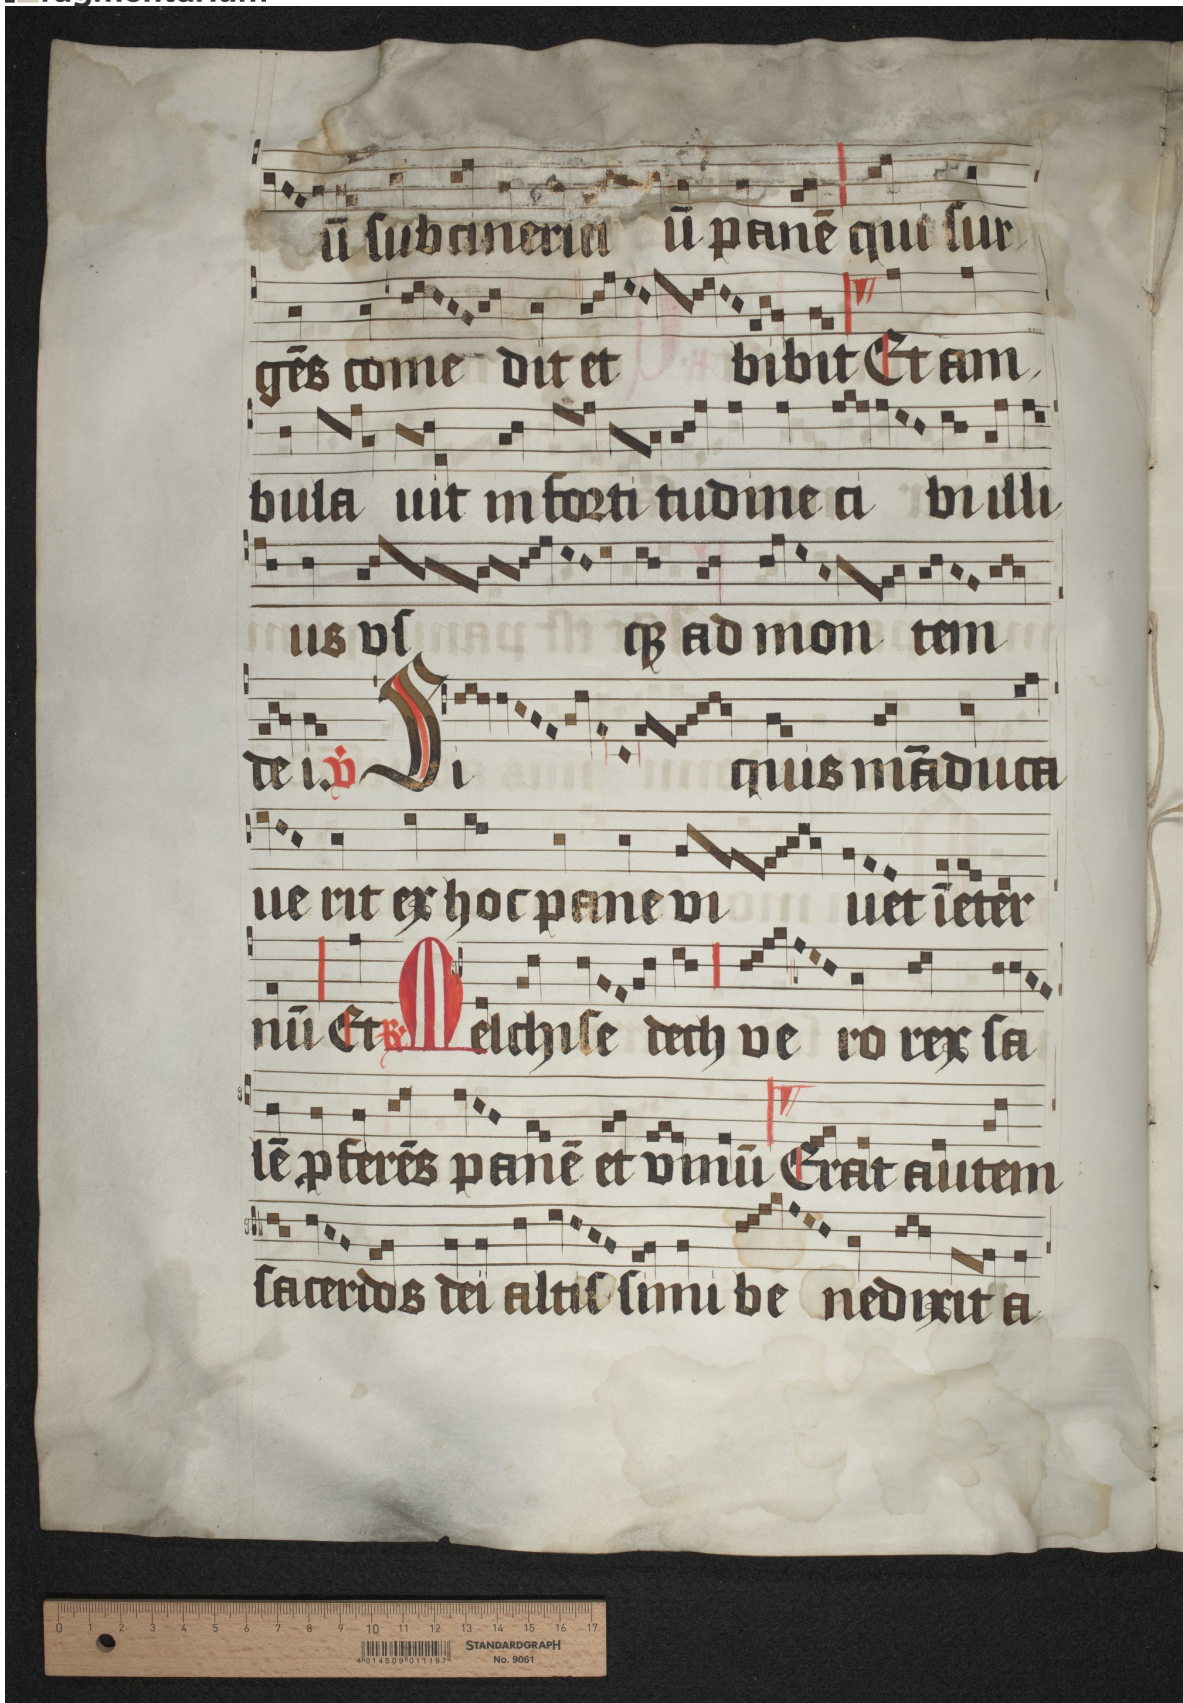 ragmentarium
ū subcinerici ū panē qui sur
gēs come dit et bibit Et am
bula uit in forti tudine ci bi illi
us vſ qꝫ ad mon tem
de i. v̇ Si quis māduca
ue rit ex hoc pane vi uet ī eter
nū Et ℟ Melchiſe dech ve ro rex ſa
lē ꝓferēs panē et vinū Erat autem
ſacerdos dei altiſ ſimi be nedixit a
0 1 2 3 4 5 6 7 8 9 10 11 12 13 14 15 16 17
4 014509 011197
STANDARDGRAPH
No. 9061